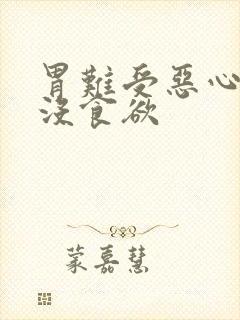 胃難受惡心
沒食欲
蒙嘉慧